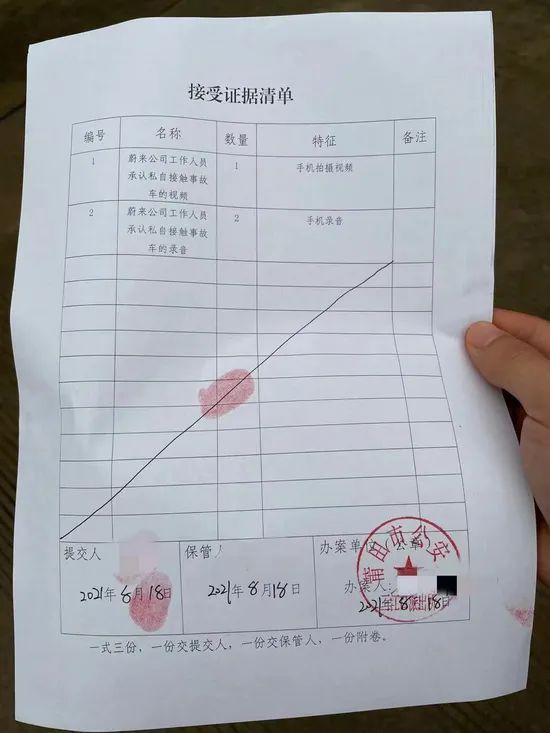 接受证据清单
编号 名称 数量 特征 备注
1 蔚来公司工作人员 1 手机拍摄视频
承认私自接触事故
车的视频
2 蔚来公司工作人员 2 手机录音
承认私自接触事故
车的录音
提交人 保管人 办案单位（公章）
莆田市公安
办案人:
2021年8月18日 2021年8月18日 2021年8月18日
派出所
一式三份，一份交提交人，一份交保管人，一份附卷。